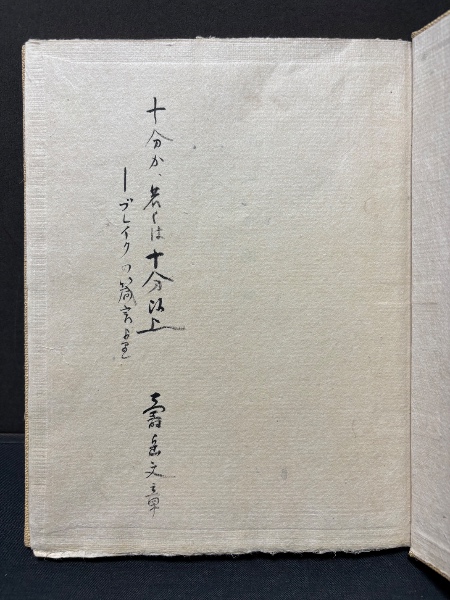 十分か、若くは十分以上
―ブレイクの箴言より
壽岳文章